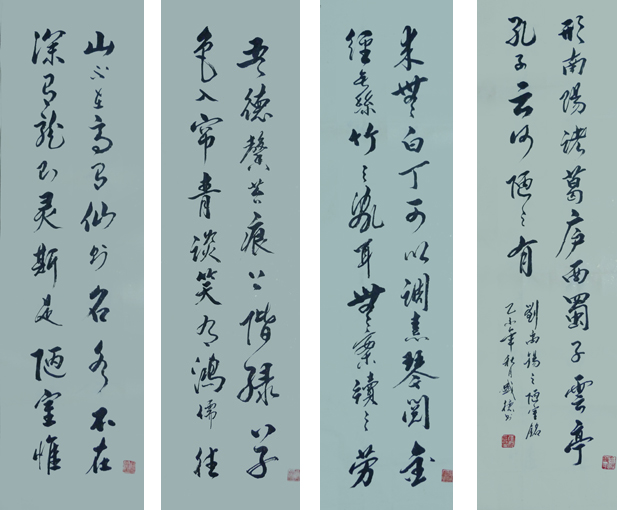 山不在高有仙則名水不在
深有龍則灵斯是陋室惟
吾德馨苔痕上階緑草
色入帘青談笑有鴻儒往
来無白丁可以調素琴閲金
經無絲竹之亂耳無案牘之勞
形南陽諸葛庐西蜀子雲亭
孔子云何陋之有
劉禹錫之陋室銘
乙未年秋月